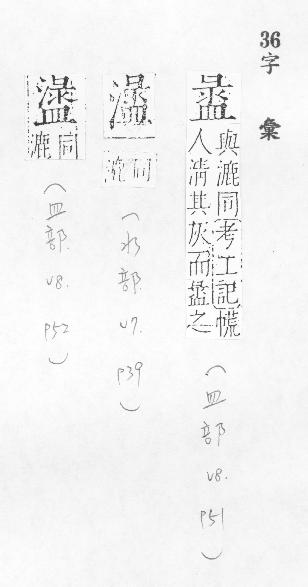 36字 彙
盝
與漉同考工記㡛
人清其灰而盝之
(皿部 v8. p51)
同漉
(水部 v7. p39)
同漉
(皿部 v8. p52)